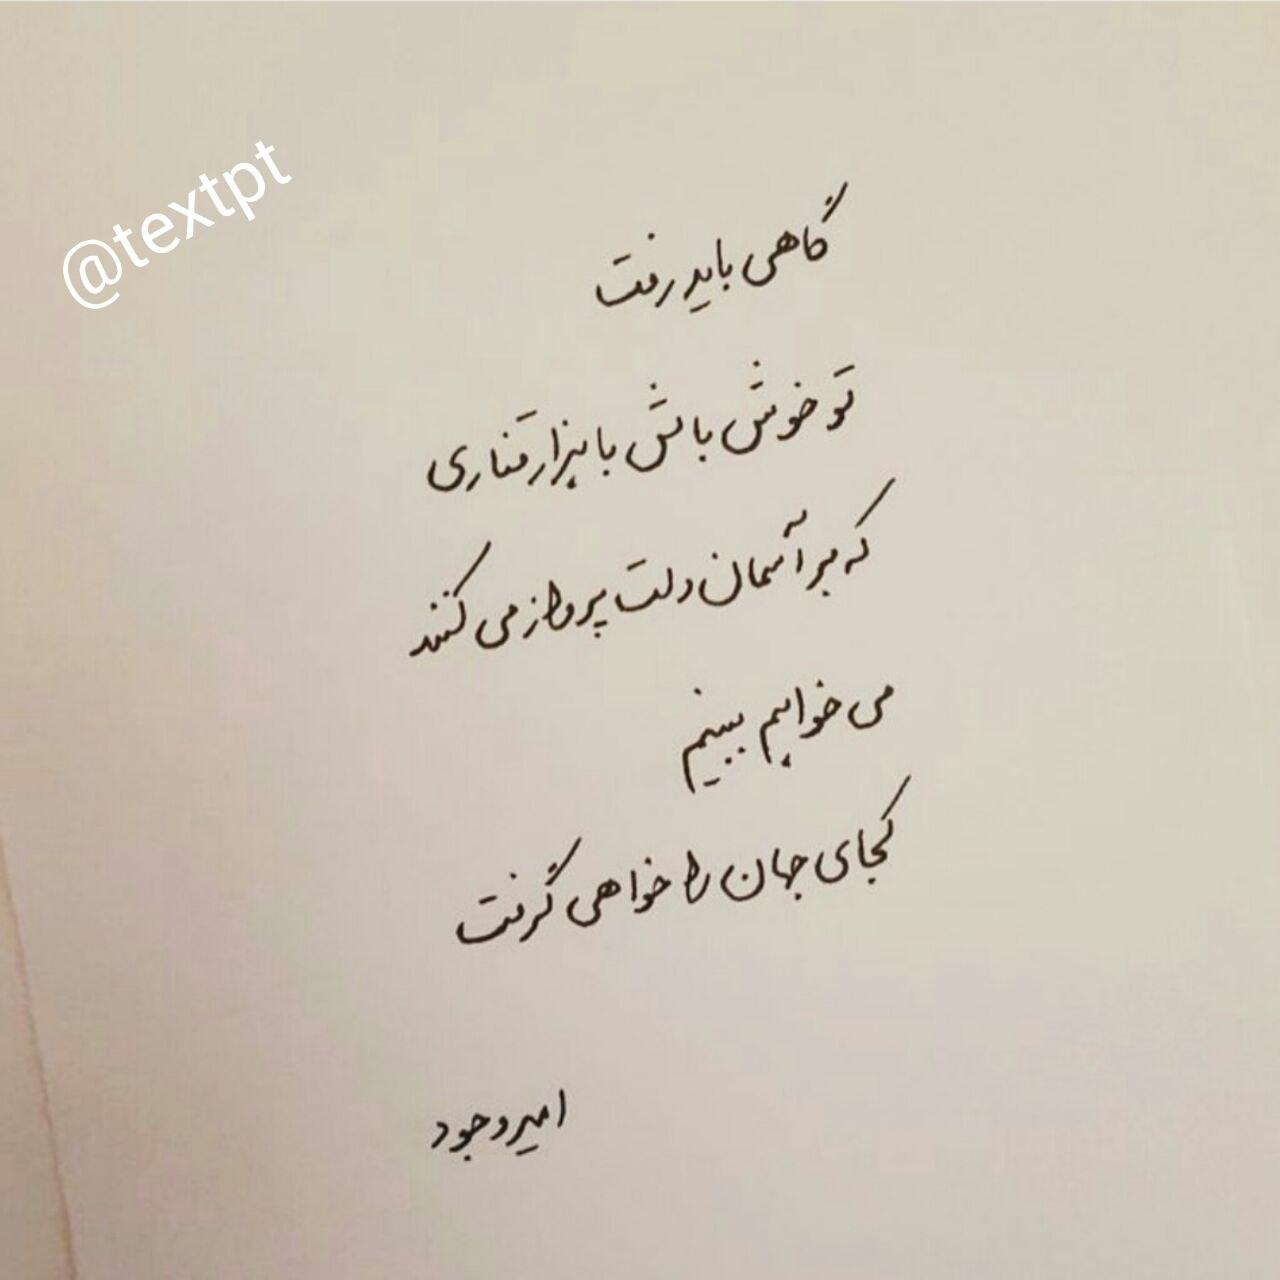 @textpt
گاهی باید رفت
تو خوش باش با هزار قناری
که بر آسمان دلت پرواز می کنند
می خواهم ببینم
کجای جهان را خواهی گرفت
امیر وجود